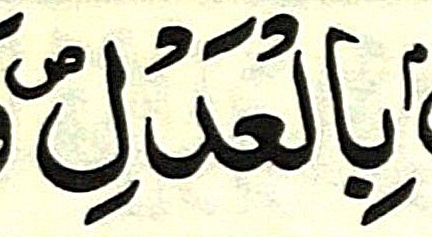 بِالْعَدْلِ ۖ